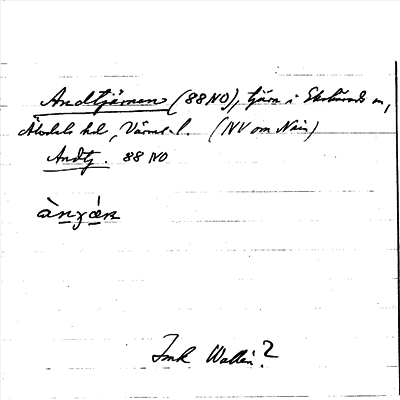 Andtjärnen (88 NO), tjärn i Ekshärads sn,
Älvdals hd, Värml. l. (NV om Näin)
Andtj. 88 NO
ànȝǽn
Wallén?